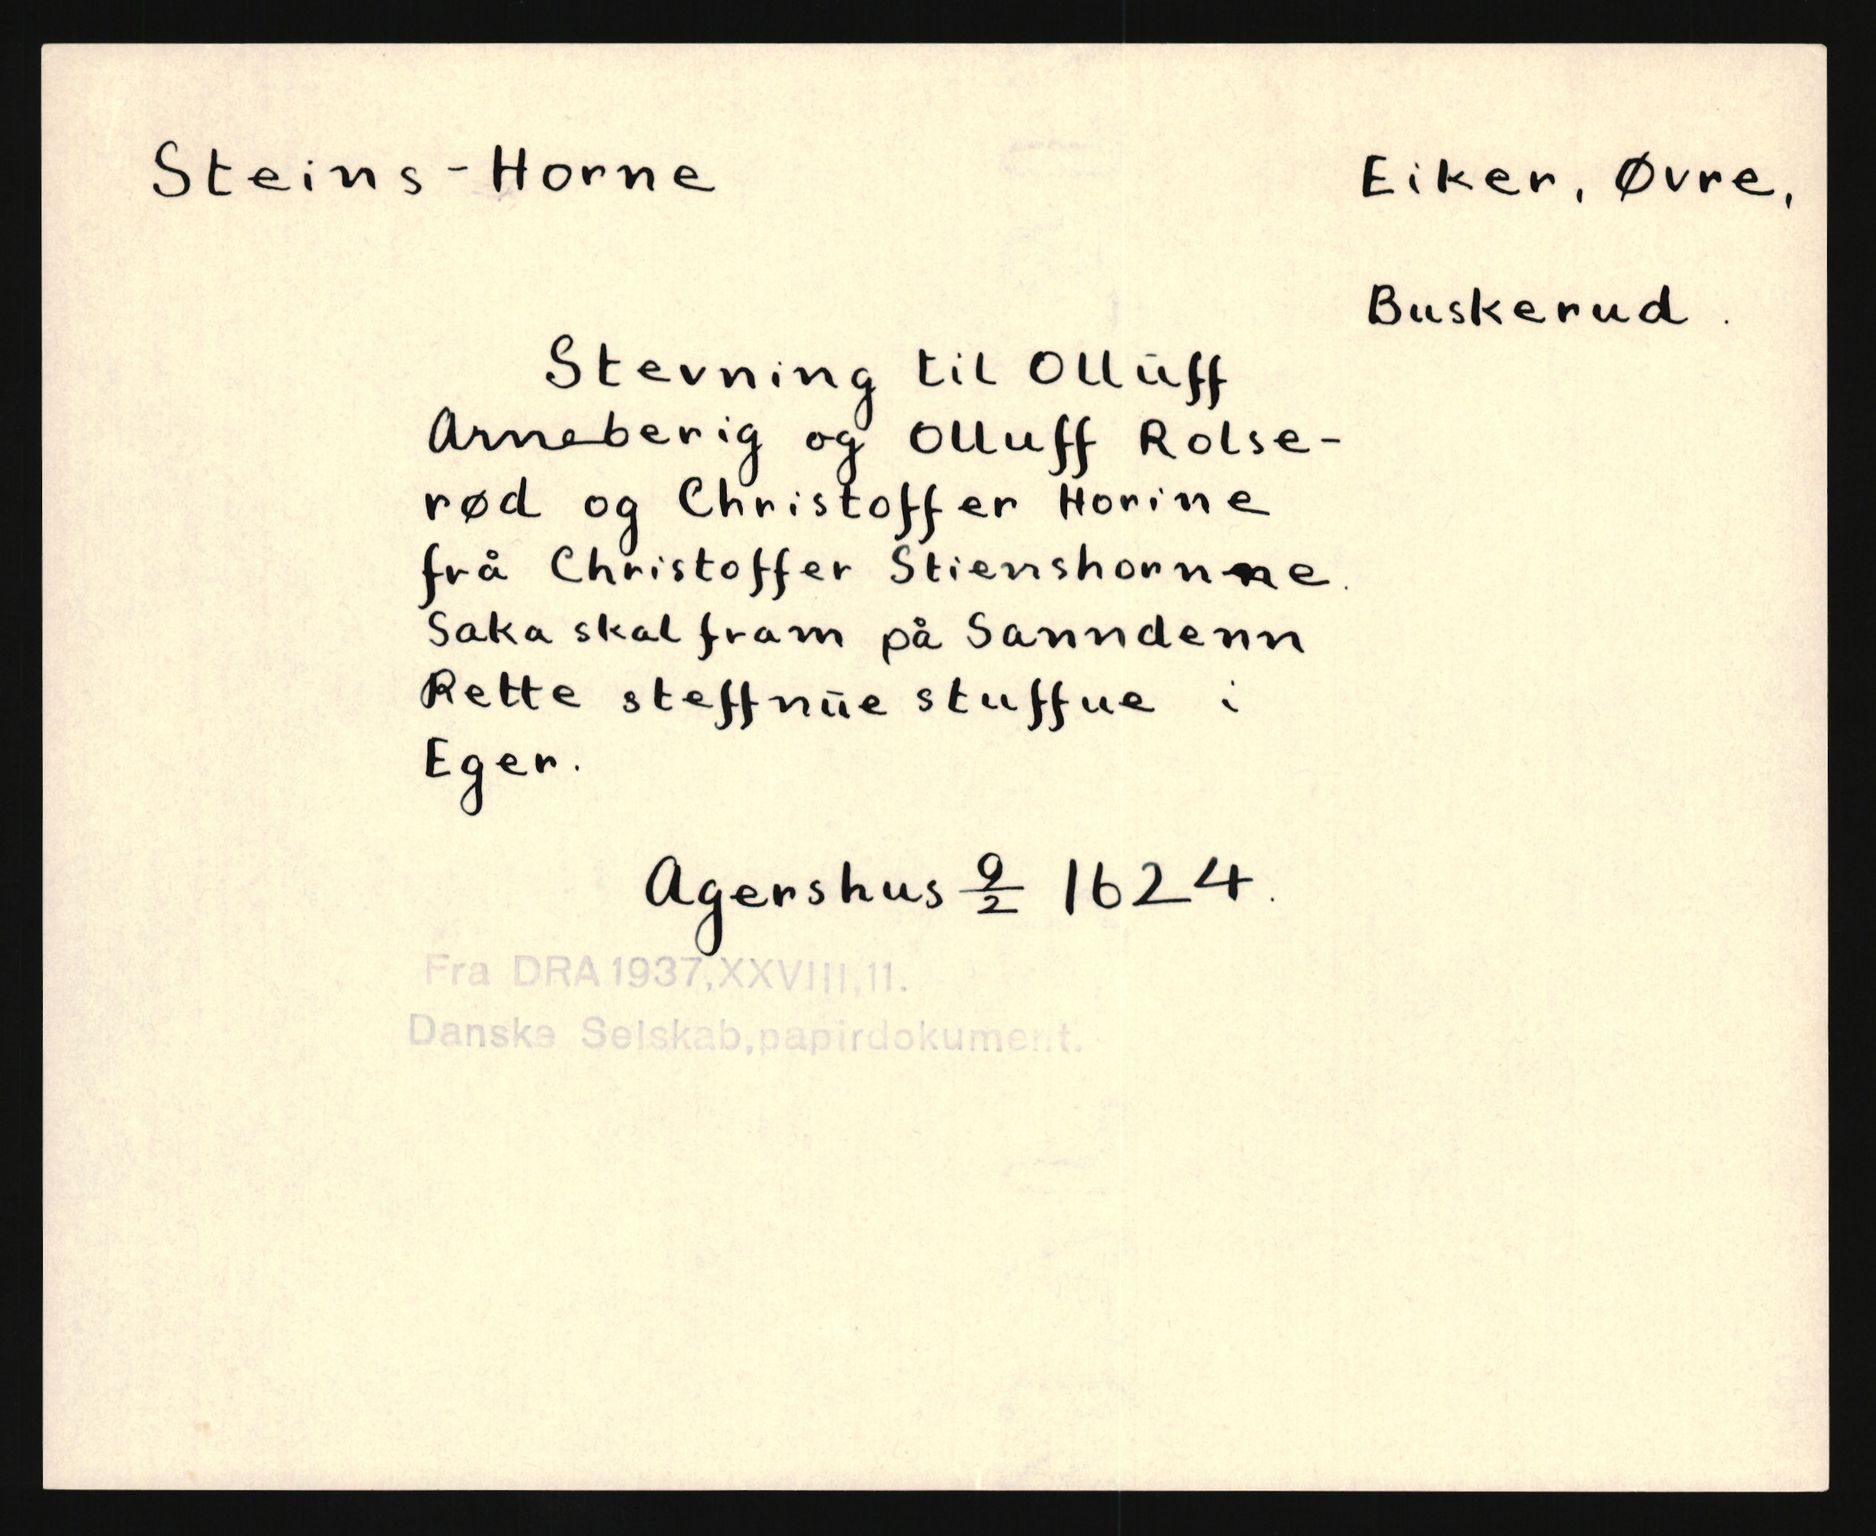 Steins-Horne
Eiker, Øvre,
Buskerud.
Stevning til Ollūff
Arneberig og Olluff Rolse-
rød og Christoffer Horine
frå Christoffer Stienshornne.
Saka skal fram på Sanndenn
Rette steffnūe stuffue i
Eger.
Agershus 9/2 1624.
Fra DRA 1937, XXVIII, 11.
Danske Selskab, papirdokument.